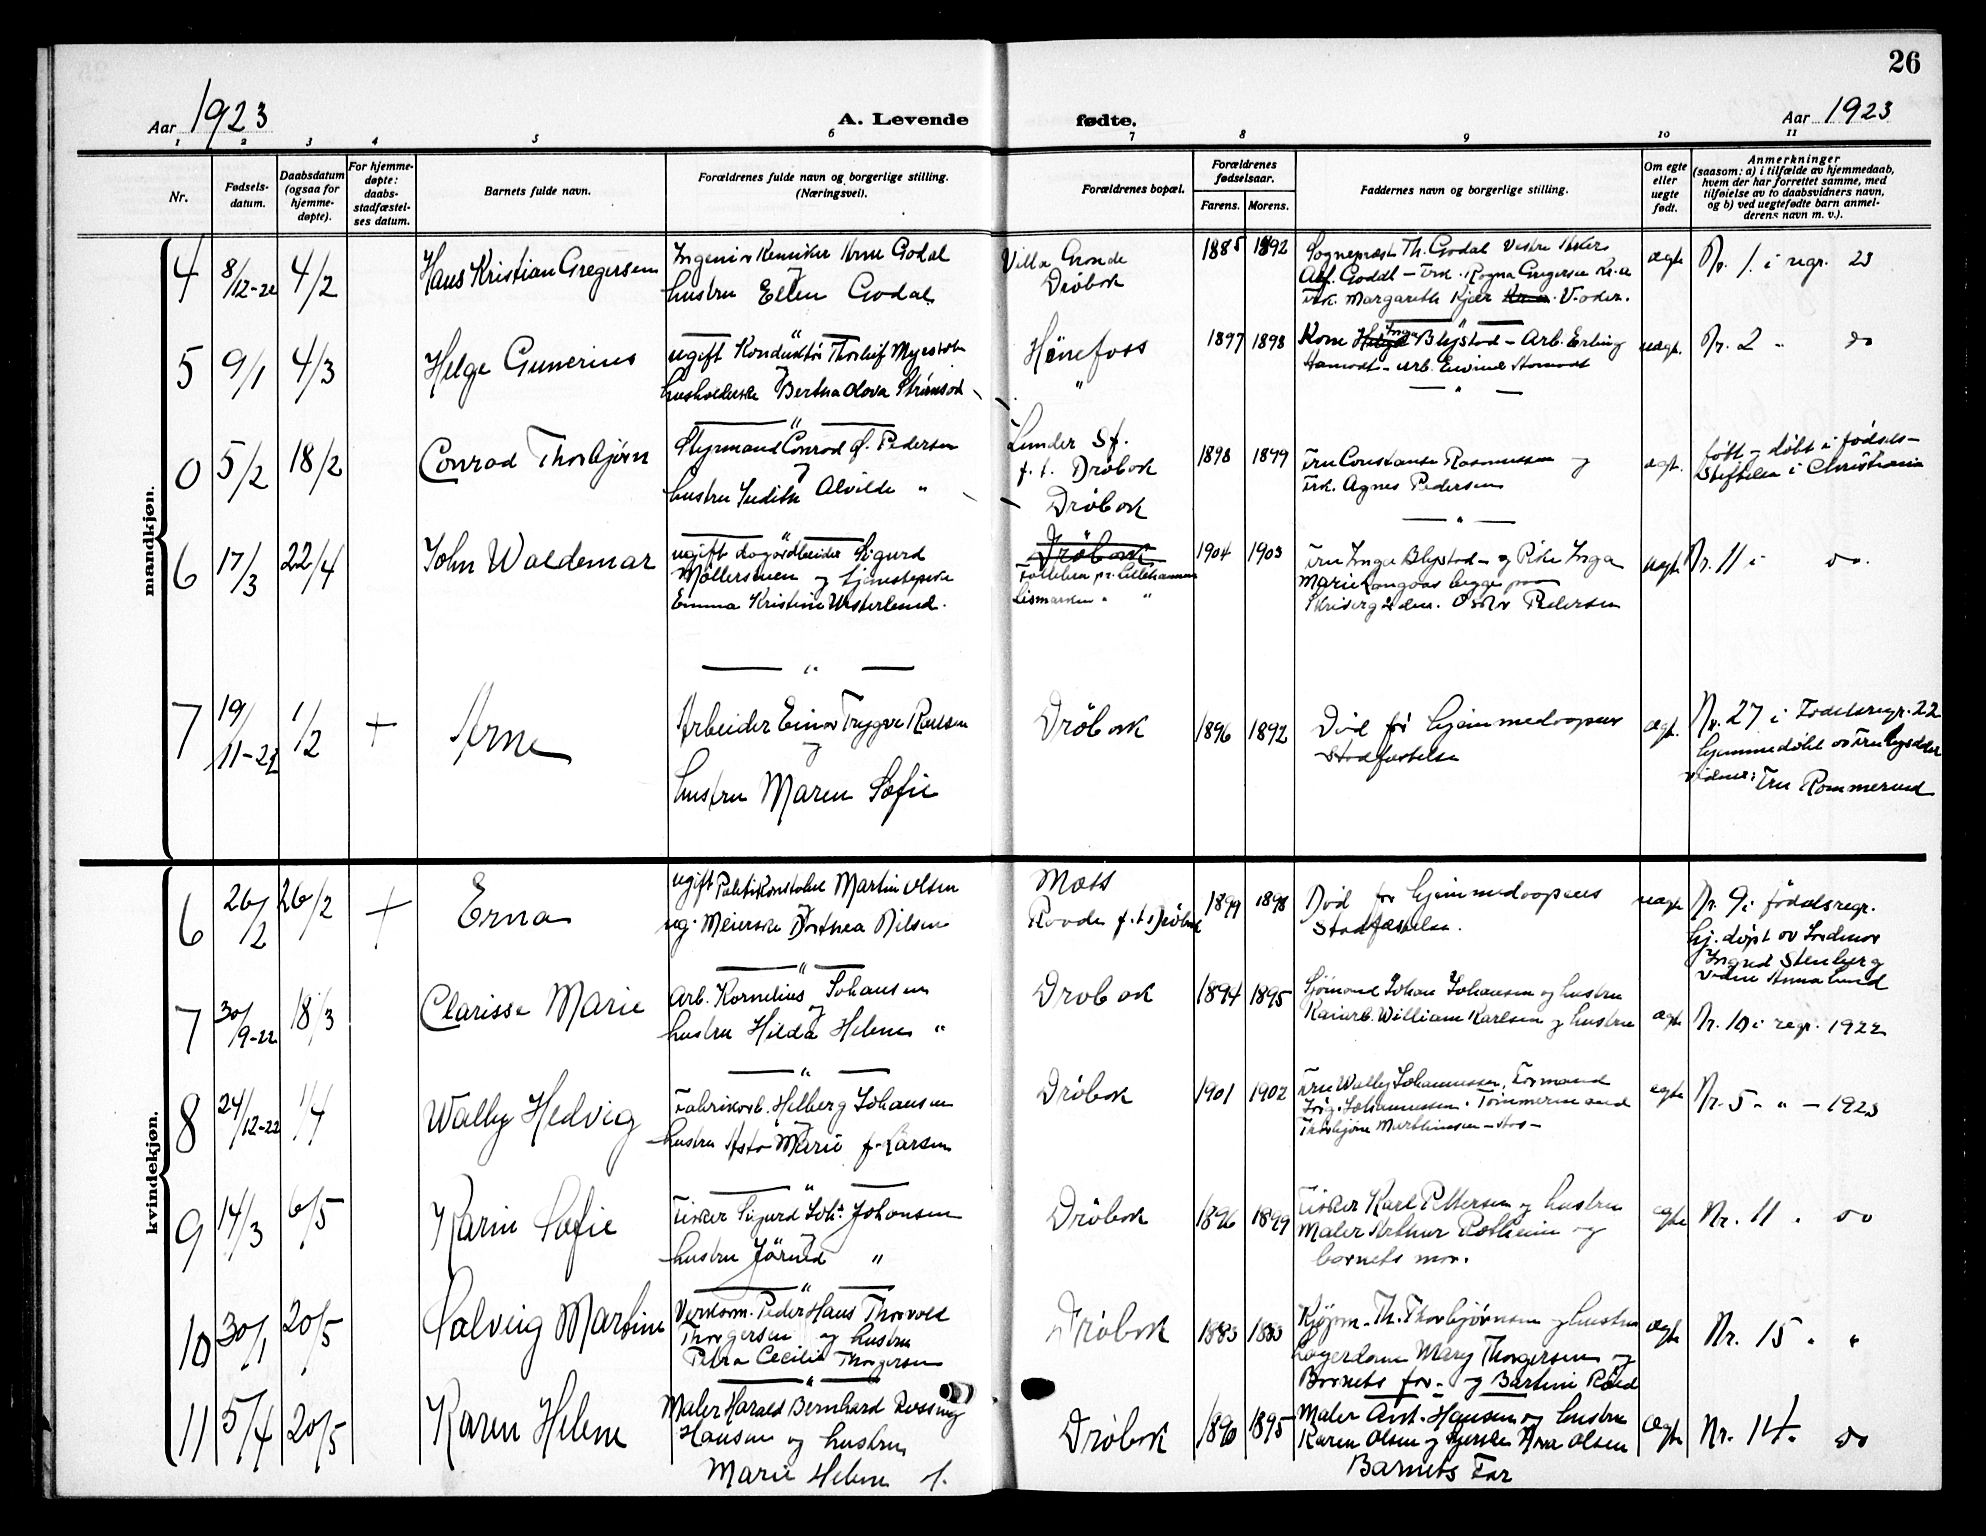 26
Aar 1923 A. Levende fødte. Aar 1923
1 2 3 4 5 6 7 8 9 10 11
Nr.
Fødsels-
datum.
Daabsdatum
(ogsaa for
hjemme-
døpte).
For hjemme-
døpte:
daabs-
stadfæstel-
ses datum.
Barnets fulde navn.
Forældrenes fulde navn og borgerlige stilling.
(Næringsvei).
Forældrenes bopæl.
Forældrenes
fødselsaar.
Farens. Morens.
Faddernes navn og borgerlige stilling.
Om egte
eller
uegte
født.
Anmerkninger
(saasom: a) i tilfælde av hjemmedaab,
hvem der har forrettet samme, med
tilføielse av to daabsvidners navn,
og b) ved uegtefødte barn anmel-
derens navn m. v.).
mandkjøn.
4 8/12-22 4/2 Hans Kristian Gregersen
Ingeniør Kemiker Arne Godal
hustru Ellen Godal
Villa Grande
Drøbak
1885 1892
Sogneprest Th. Godal Vestre Aker
Alf. Godal - Frk. Ragna Gregersen Kr.a
Frk. Margarethe Kjær
ægte
Nr. 1. i regr. 23
5 9/1 4/3 Helge Gunerius
ugift Konduktør Thorleif Myrstad
husholderske Bertha Olova
Hønefoss
"
1897 1898
Kone Inga Blystad - Arb. Erling
Hamodt - Arb. Eivind Hamodt
uægt.
Nr. 2 " do
0 5/2 18/2 Conrad Thorbjørn
Styrmand Conrad Ø. Pedersen
og
hustru Judith Alvilde "
f. t. Drøbak
Drøbak
1898 1899
Fru Constanse Rasmussen og
Frk. Agnes Pedersen
ægt.
født og døbt i fødsels-
stiftelsen i Christiania
6 17/3 22/4 John Waldemar
ugift dagarbeider Sigurd
Møllersveen og tjenestepike
Emma Kristine Westerlund.
Drøbak
Lismarken " "
1904 1903
Fru Inga Blystad - og Pike Inga
Marie Langaas begge paa
Pedersen
uægte
Nr. 11 i do.
7 19/11-22 1/2 + Arne
Arbeider Einar Tryggve Paulsen
og
hustru Maren Sofie
Drøbak
1896 1892
Død før hjemmedaapens
Stadfæstelse
ægt.
Nr. 27 i Fødselsregr. 22
hjemmedøbt av Fru
vidner: Fru Rommerud
kvindekjøn.
6 26/2 26/2 + Erna
ugift Politikonstabel Martin Olsen
ug. Meierske Dorthea Nilsen
Moss
Raade f. t. Drøbak
1899 1898
Død før hjemmedaapens
Stadfæstelse.
uægte
Nr. 9 i fødselsregr.
hj. døpt av Jordmor
Ingrid Stenberg
Vidne Anna Lund
7 30/9-22 18/3 Clarisse Marie
Arb. Kornelius Johansen
og
hustru Hilda Helene "
Drøbak
1894 1895
Sjømand Johan Johansen og hustru
Kaiarb. William Karlsen og hustru
ægte
Nr. 10 i regr. 1922
8 24/12-22 1/4 Wally Hedvig
Fabrikarb. Hilberg Johansen
og
hustru Asta Marie f. Larsen
Drøbak
1901 1902
Fru Wally Johannessen, Formand
Johannessen. Tømmermand
Thorbjørn Marthinsen
ægte
Nr. 5 - " - 1923
9 14/3 6/5 Karin Sofie
Fisker Sigurd Joh.s Johansen
og
hustru Jørind "
Drøbak
1896 1899
Fisker Karl Pettersen og hustru
Maler Arthur Rotheim og
barnets mor.
egte
Nr. 11 . do
10 30/1 20/5 Solveig Martine
Verksm. Peder Hans Thorvald
Thorgersen og hustru
Petra Cecilie Thorgersen
Drøbak
1883 1883
Kjøpm. Th. Thorbjørnsen og hustru
Mary Thorgersen og
Barnets far - og
ægte
Nr. 15 . "
11 5/4 20/5 Karen Helene
Maler Harald Bernhard Rossing
Hansen og hustru
Marie Helene f.
Drøbak
1890 1895
Maler Ant. Hansen og hustru
Karen Olsen og Anna Olsen
Barnets Far
Ægte
Nr. 14. do